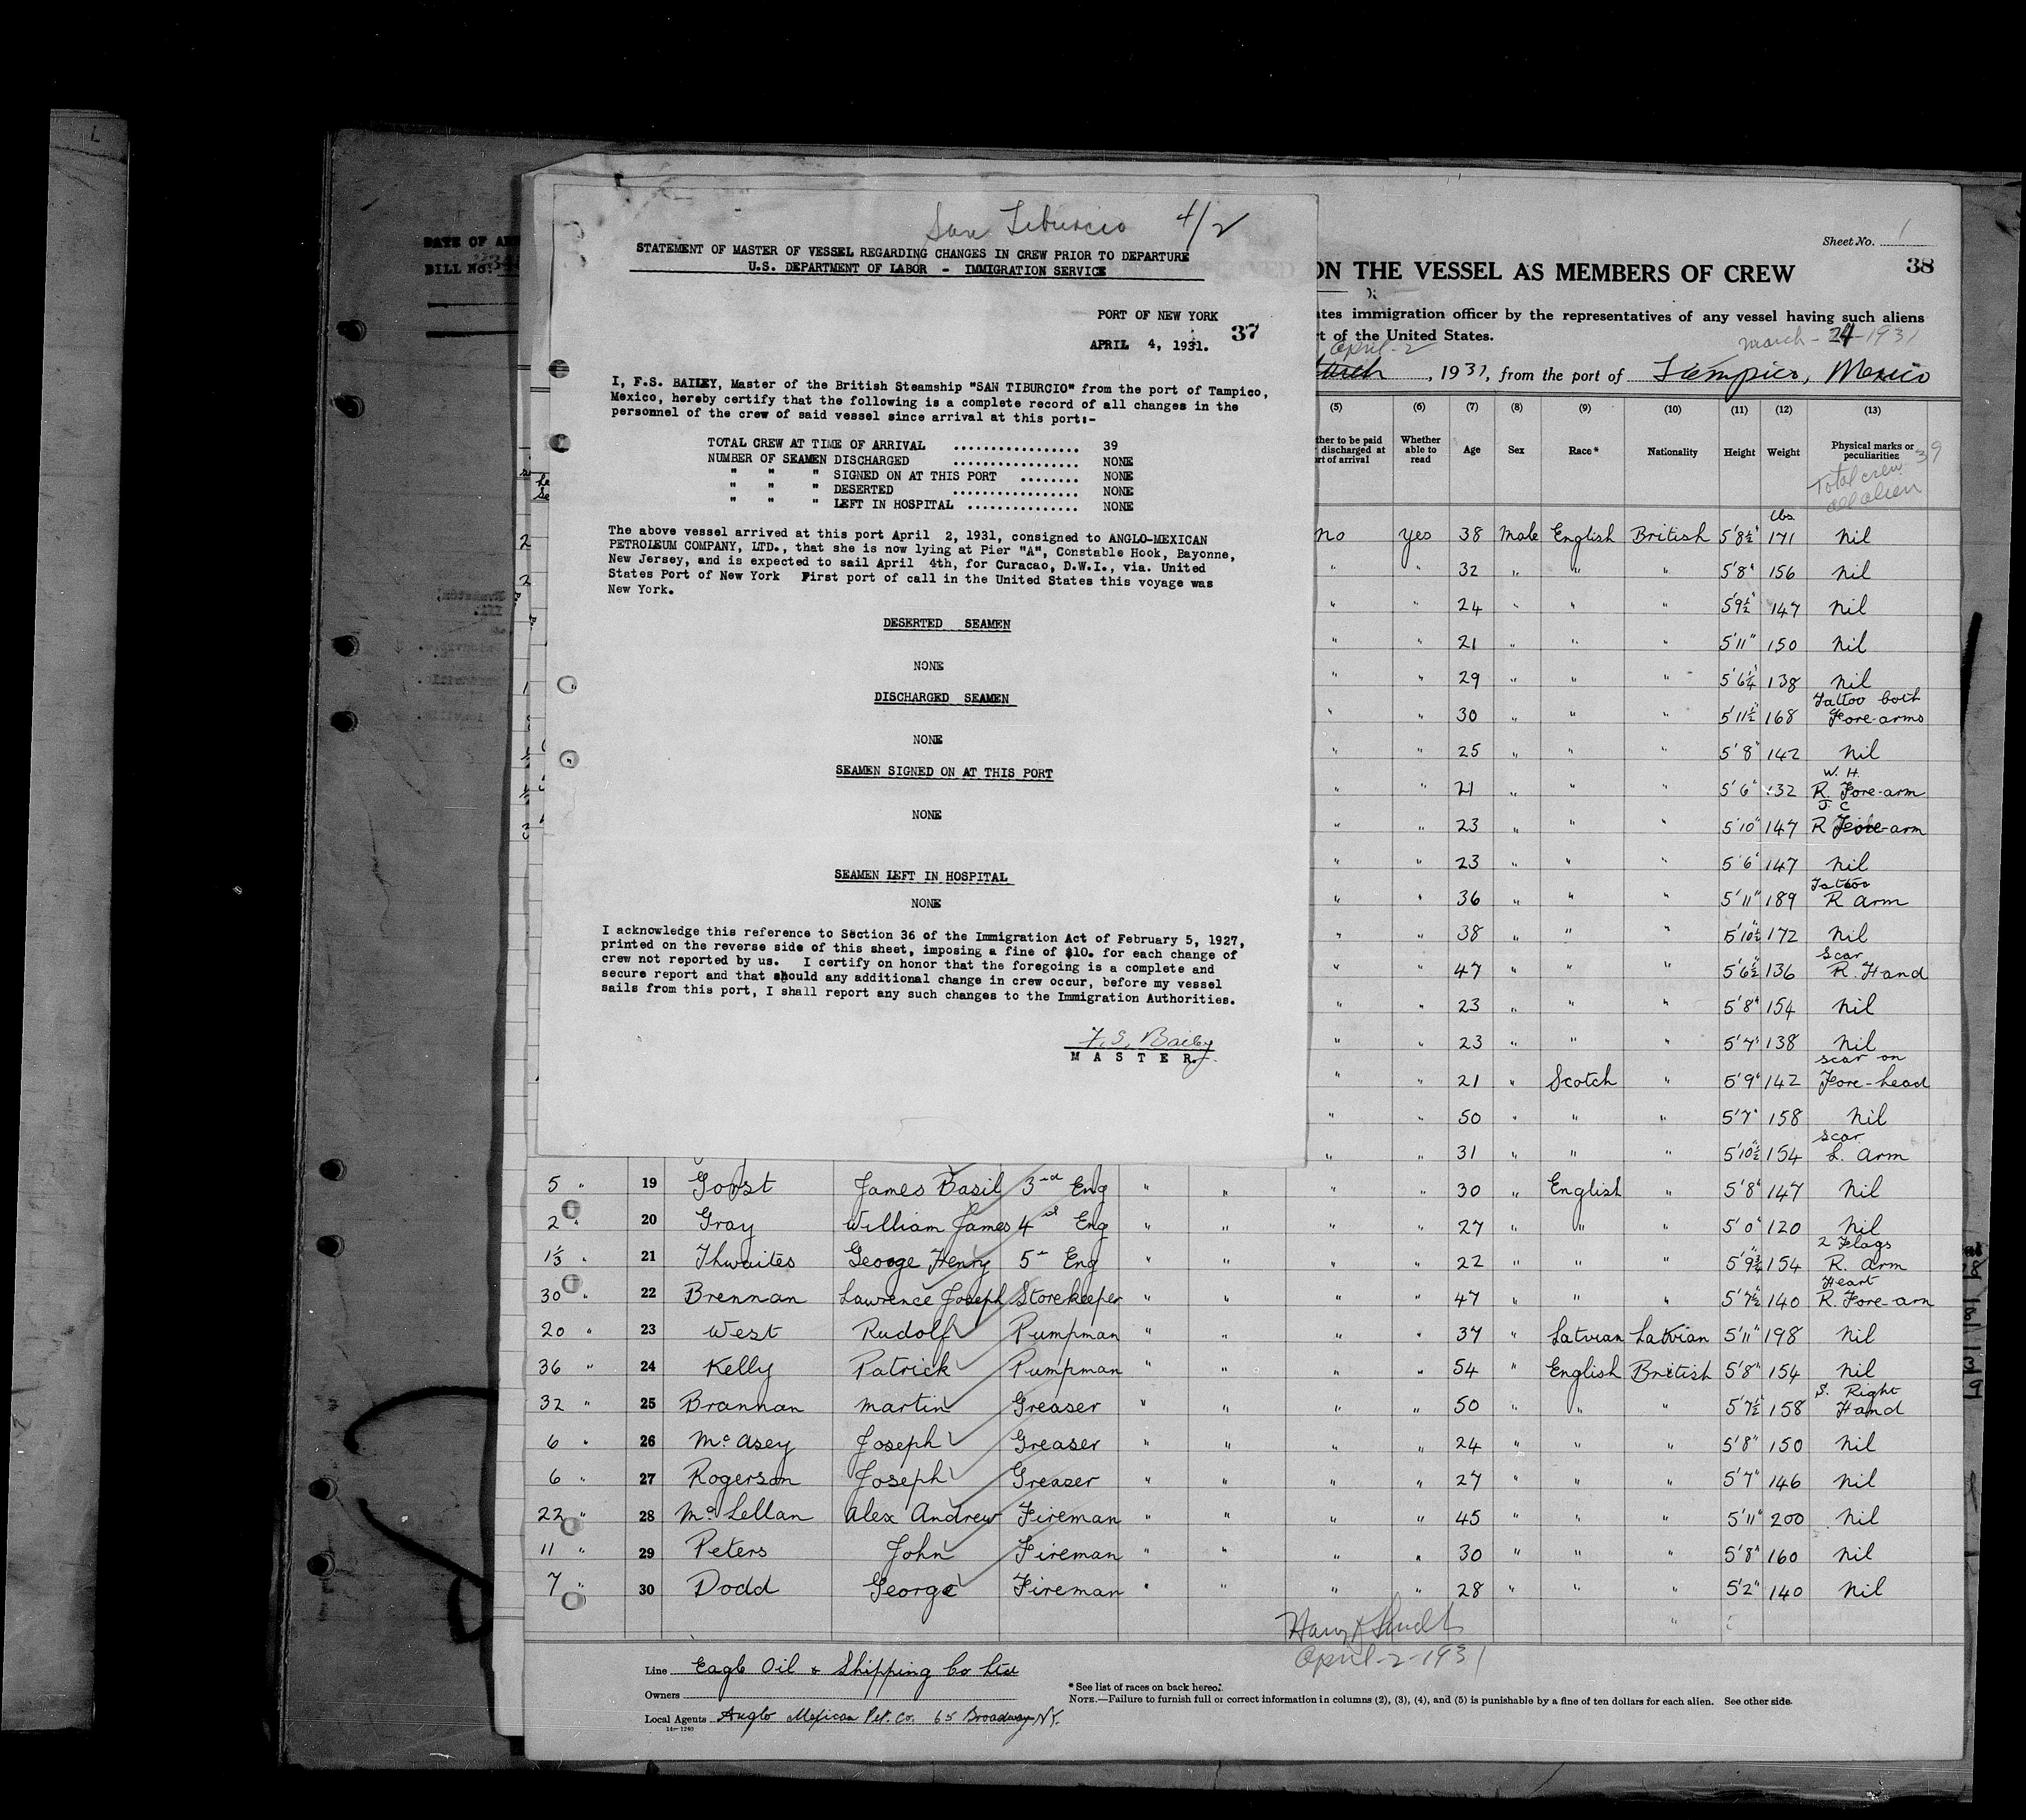 San Tiburcio 4/2
STATEMENT OF MASTER OF VESSEL REGARDING CHANGES IN CREW PRIOR TO DEPARTURE
U.S. DEPARTMENT OF LABOR - IMMIGRATION SERVICE
PORT OF NEW YORK
37
APRIL 4, 1931.
I, F.S. BAILEY, Master of the British Steamship "SAN TIBURCIO" from the port of Tampico,
Mexico, hereby certify that the following is a complete record of all changes in the
personnel of the crew of said vessel since arrival at this port:-
TOTAL CREW AT TIME OF ARRIVAL .................. 39
NUMBER OF SEAMEN DISCHARGED .................. NONE
" " " SIGNED ON AT THIS PORT ........ NONE
" " " DESERTED .................. NONE
" " " LEFT IN HOSPITAL ................ NONE
The above vessel arrived at this port April 2, 1931, consigned to ANGLO-MEXICAN
PETROLEUM COMPANY, LTD., that she is now lying at Pier "A", Constable Hook, Bayonne,
New Jersey, and is expected to sail April 4th, for Curacao, D.W.I., via. United
States Port of New York First port of call in the United States this voyage was
New York.
DESERTED SEAMEN
NONE
DISCHARGED SEAMEN
NONE
SEAMEN SIGNED ON AT THIS PORT
NONE
SEAMEN LEFT IN HOSPITAL
NONE
I acknowledge this reference to Section 36 of the Immigration Act of February 5, 1927,
printed on the reverse side of this sheet, imposing a fine of $10. for each change of
crew not reported by us. I certify on honor that the foregoing is a complete and
secure report and that should any additional change in crew occur, before my vessel
sails from this port, I shall report any such changes to the Immigration Authorities.
F. S. Bailey
M A S T E R.
DATE OF
BILL No.
Sheet No. 1
38
ON THE VESSEL AS MEMBERS OF CREW
immigration officer by the representatives of any vessel having such aliens
of the United States.
April-2
March-24-1931
, 1931, from the port of Tampico, Mexico
(5) (6) (7) (8) (9) (10) (11) (12) (13)
to be paid discharged at of arrival Whether able to read Age Sex Race* Nationality Height Weight Physical marks or peculiarities
Total crew 39
all alien
lbs
No Yes 38 Male English British 5'8½" 171 Nil
" " 32 " " " 5'8" 156 Nil
" " 24 " " " 5'9½" 147 Nil
" " 21 " " " 5'11" 150 Nil
" " 29 " " " 5'6¼" 138 Nil
" " 30 " " " 5'11½" 168 Tattoo both Fore-arms
" " 25 " " " 5'8" 142 Nil
" " 21 " " " 5'6" 132 W. H. R. Fore-arm
" " 23 " " " 5'10" 147 J. C R Fore-arm
" " 23 " " " 5'6" 147 Nil
" " 36 " " " 5'11" 189 Tattoo R arm
" " 38 " " " 5'10½" 172 Nil
" " 47 " " " 5'6½" 136 Scar R. Hand
" " 23 " " " 5'8" 154 Nil
" " 23 " " " 5'7" 138 Nil
" " 21 " Scotch " 5'9" 142 scar on Fore-head
" " 50 " " " 5'7" 158 Nil
" " 31 " " " 5'10½" 154 scar L. arm
5 " 19 Gorst James Basil 3rd Eng " " " " 30 " English " 5'8" 147 Nil
2 " 20 Gray William James 4th Eng " " " " 27 " " " 5'0" 120 Nil
1⅓ " 21 Thwaites George Henry 5th Eng " " " " 22 " " " 5'9¾" 154 2 Flags R. arm
30 " 22 Brennan Lawrence Joseph Storekeeper " " " " 47 " " " 5'7½" 140 Heart R. Fore-arm
20 " 23 West Rudolf Pumpman " " " " 37 " Latvian Latvian 5'11" 198 Nil
36 " 24 Kelly Patrick Pumpman " " " " 54 " English British 5'8" 154 Nil
32 " 25 Brannan Martin Greaser " " " " 50 " " " 5'7½" 158 S. Right Hand
6 " 26 McAsey Joseph Greaser " " " " 24 " " " 5'8" 150 Nil
6 " 27 Rogerson Joseph Greaser " " " " 27 " " " 5'7" 146 Nil
22 " 28 McLellan Alex Andrew Fireman " " " " 45 " " " 5'11" 200 Nil
11 " 29 Peters John Fireman " " " " 30 " " " 5'8" 160 Nil
7 " 30 Dodd George Fireman " " " " 28 " " " 5'2" 140 Nil
April-2-1931
Line Eagle Oil & Shipping Co Ltd
Owners
Local Agents Anglo Mexican Pet. Co. 65 Broadway N.Y.
14-1240
* See list of races on back hereof.
NOTE.—Failure to furnish full or correct information in columns (2), (3), (4), and (5) is punishable by a fine of ten dollars for each alien. See other side.